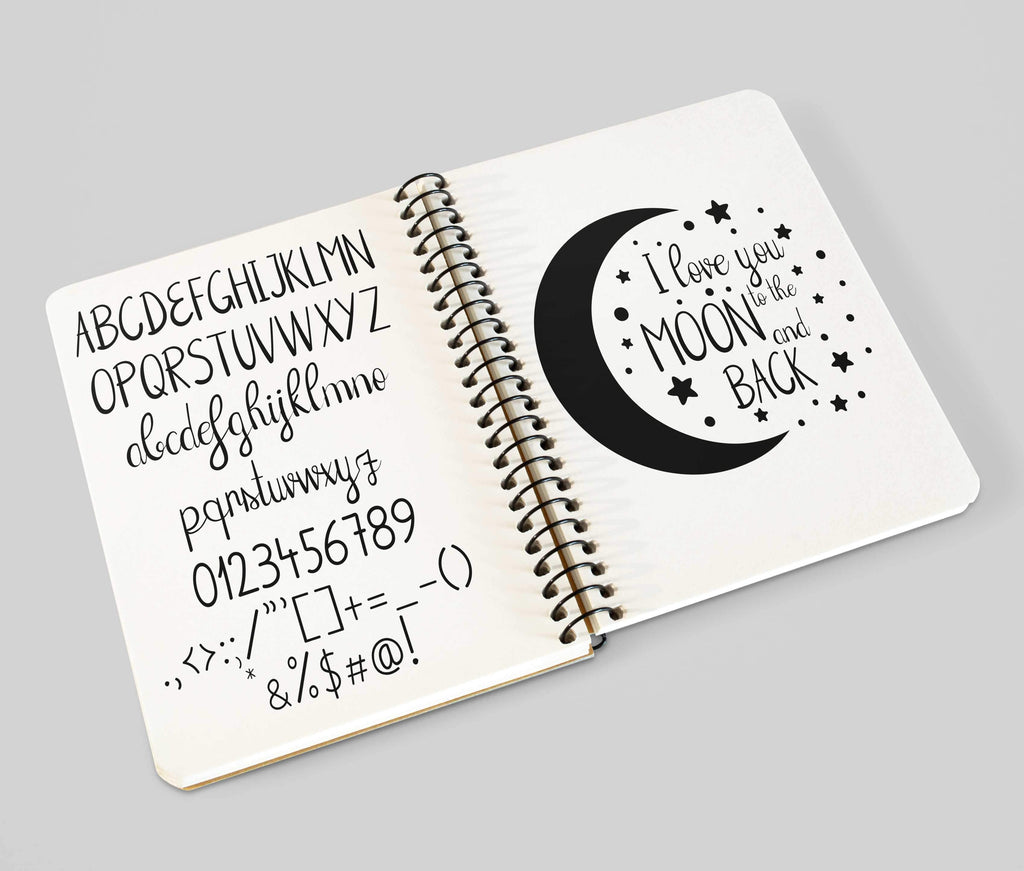 ABCDEFGHIJKLMN
OPQRSTUVWXYZ
abcdefghijklmno
pqrstuvwxyz
0123456789
.,<>:;/"'[]+=_-()
*&%$#@!
I love you
to the
MOON
and
BACK